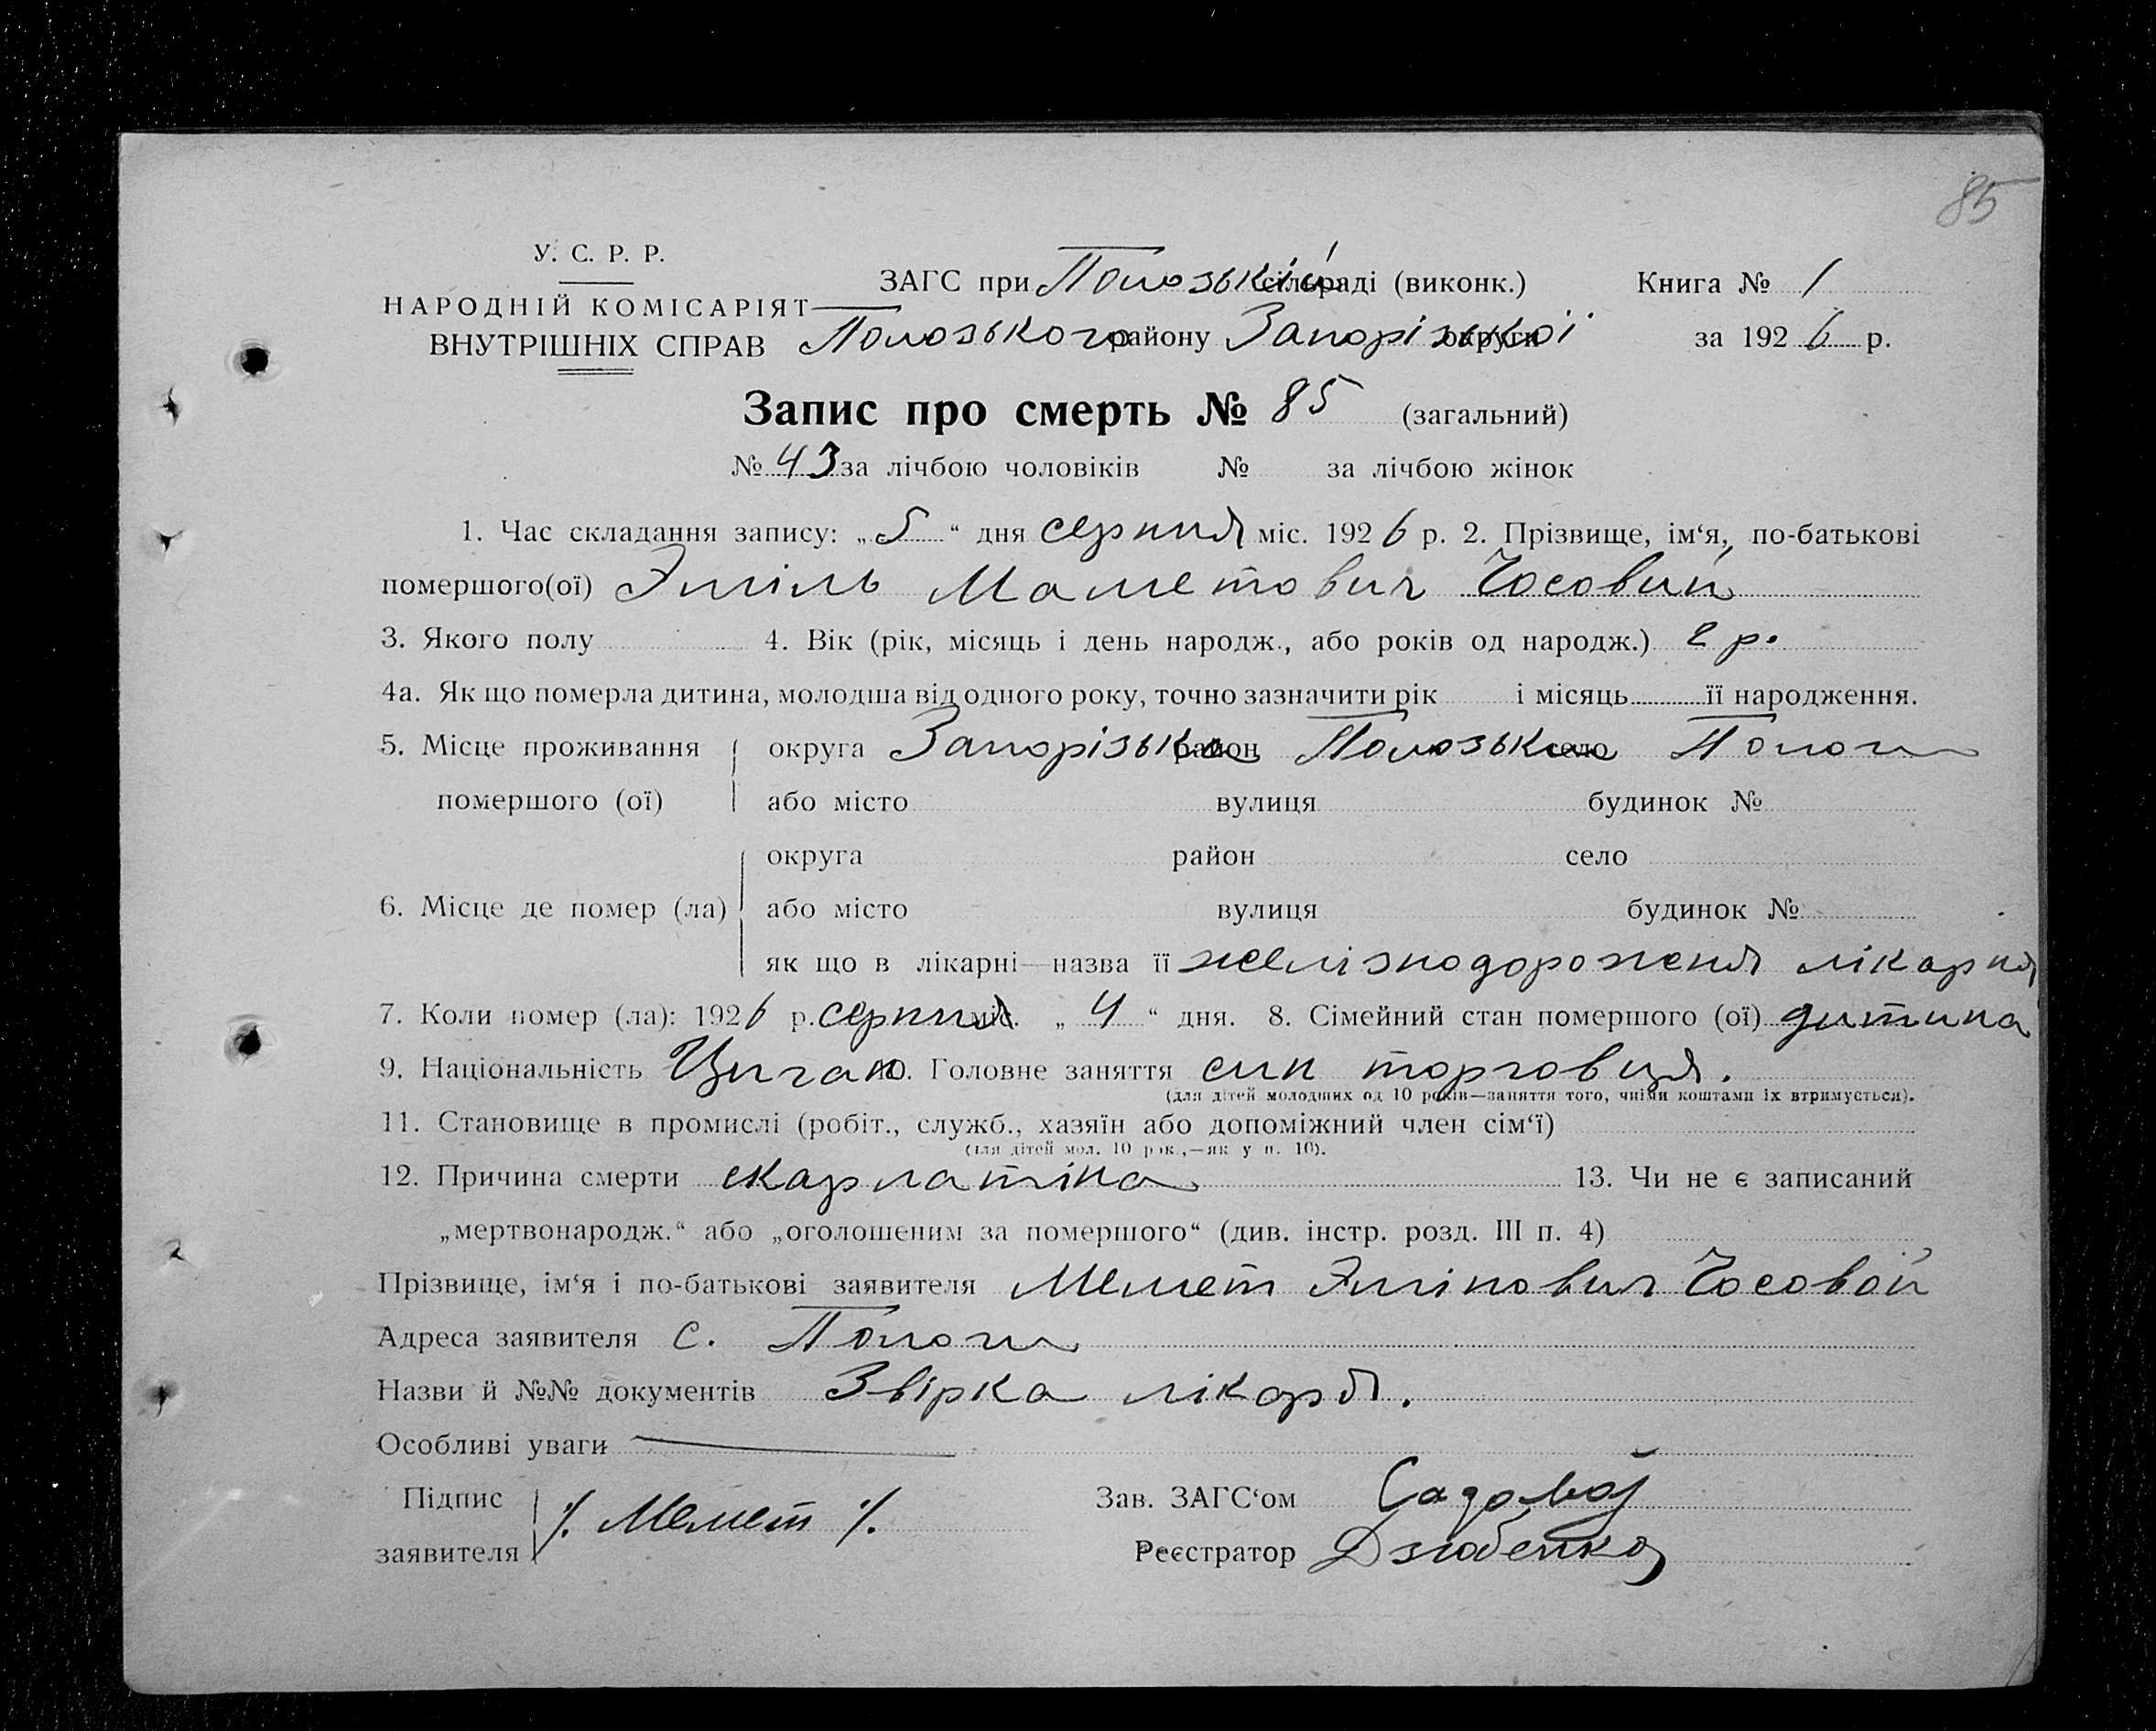 85
У. С. Р. Р.
НАРОДНІЙ КОМІСАРІЯТ
ВНУТРІШНІХ СПРАВ
ЗАГС при Полозькій сільраді (виконк.) Книга № 1
Полозького району Запорізької округи за 1926 р.
Запис про смерть № 85 (загальний)
№ 43 за лічбою чоловіків № за лічбою жінок
1. Час складання запису: „5“ дня серпня міс. 1926 р. 2. Прізвище, ім‘я, по-батькові
помершого(ої) Эміль Маметович Чосовий
3. Якого полу 4. Вік (рік, місяць і день народж., або років од народж.) 2 р.
4а. Як що померла дитина, молодша від одного року, точно зазначити рік і місяць її народження.
5. Місце проживання округа Запорізька район Полозький село Пологи
помершого (ої) або місто вулиця будинок №
округа район село
6. Місце де помер (ла) або місто вулиця будинок №
як що в лікарні—назва її желізнодорожня лікарня
7. Коли помер (ла): 1926 р. серпня міс. „4“ дня. 8. Сімейний стан помершого (ої) дитина
9. Національність Циган 10. Головне заняття син торговця.
(для дітей молодших од 10 років—заняття того, чиїми коштами їх втримується).
11. Становище в промислі (робіт., служб., хазяїн або допоміжний член сім‘ї)
(для дітей мол. 10 рок.,—як у п. 10).
12. Причина смерти скарлатіна 13. Чи не є записаний
„мертвонародж.“ або „оголошеним за помершого“ (див. інстр. розд. III п. 4)
Прізвище, ім‘я і по-батькові заявителя Мемет Эмінович Чосовой
Адреса заявителя с. Пологи
Назви й №№ документів Звірка лікаря.
Особливі уваги
Підпис
заявителя /. Мемет /.
Зав. ЗАГС‘ом Садовой
Реєстратор Дзюбенко